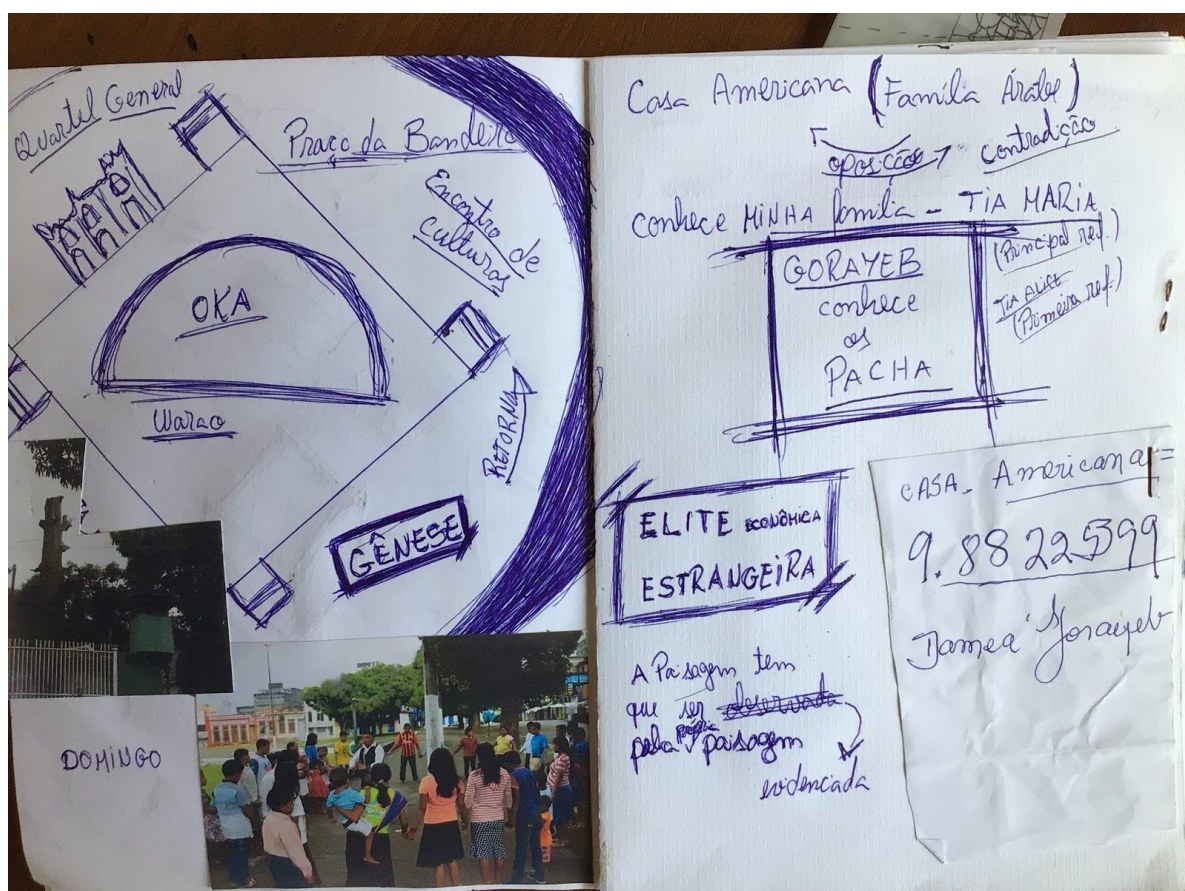 Quartel General
Praça da Bandeira
Encontro de
culturas
OKA
Warao
RETORNA
GÊNESE
DOMINGO
Casa Americana (Família Árabe)
oposição
contradição
conhece MINHA família - TIA MARIA
(Principal ref.)
TIA ALICE
(Primeira ref.)
GORAYEB
conhece
os
PACHA
ELITE ECONÔMICA
ESTRANGEIRA
A Paisagem tem
que ser observada
pela própria paisagem
evidenciada
CASA - Americana =
9.8822599
Gorayeb